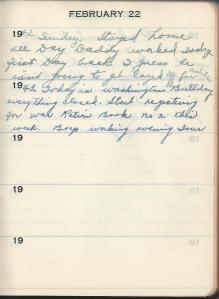 FEBRUARY 22
1942 Sunday Stayed home
all Day Daddy worked today
first Day back I guess he
isn't going to get layed off for awhile
1943. Today is Washingtons Birthday
everything closed. Start registering
for war Ration Book no 2 this
week. Boys working evening Tour
19
19
19